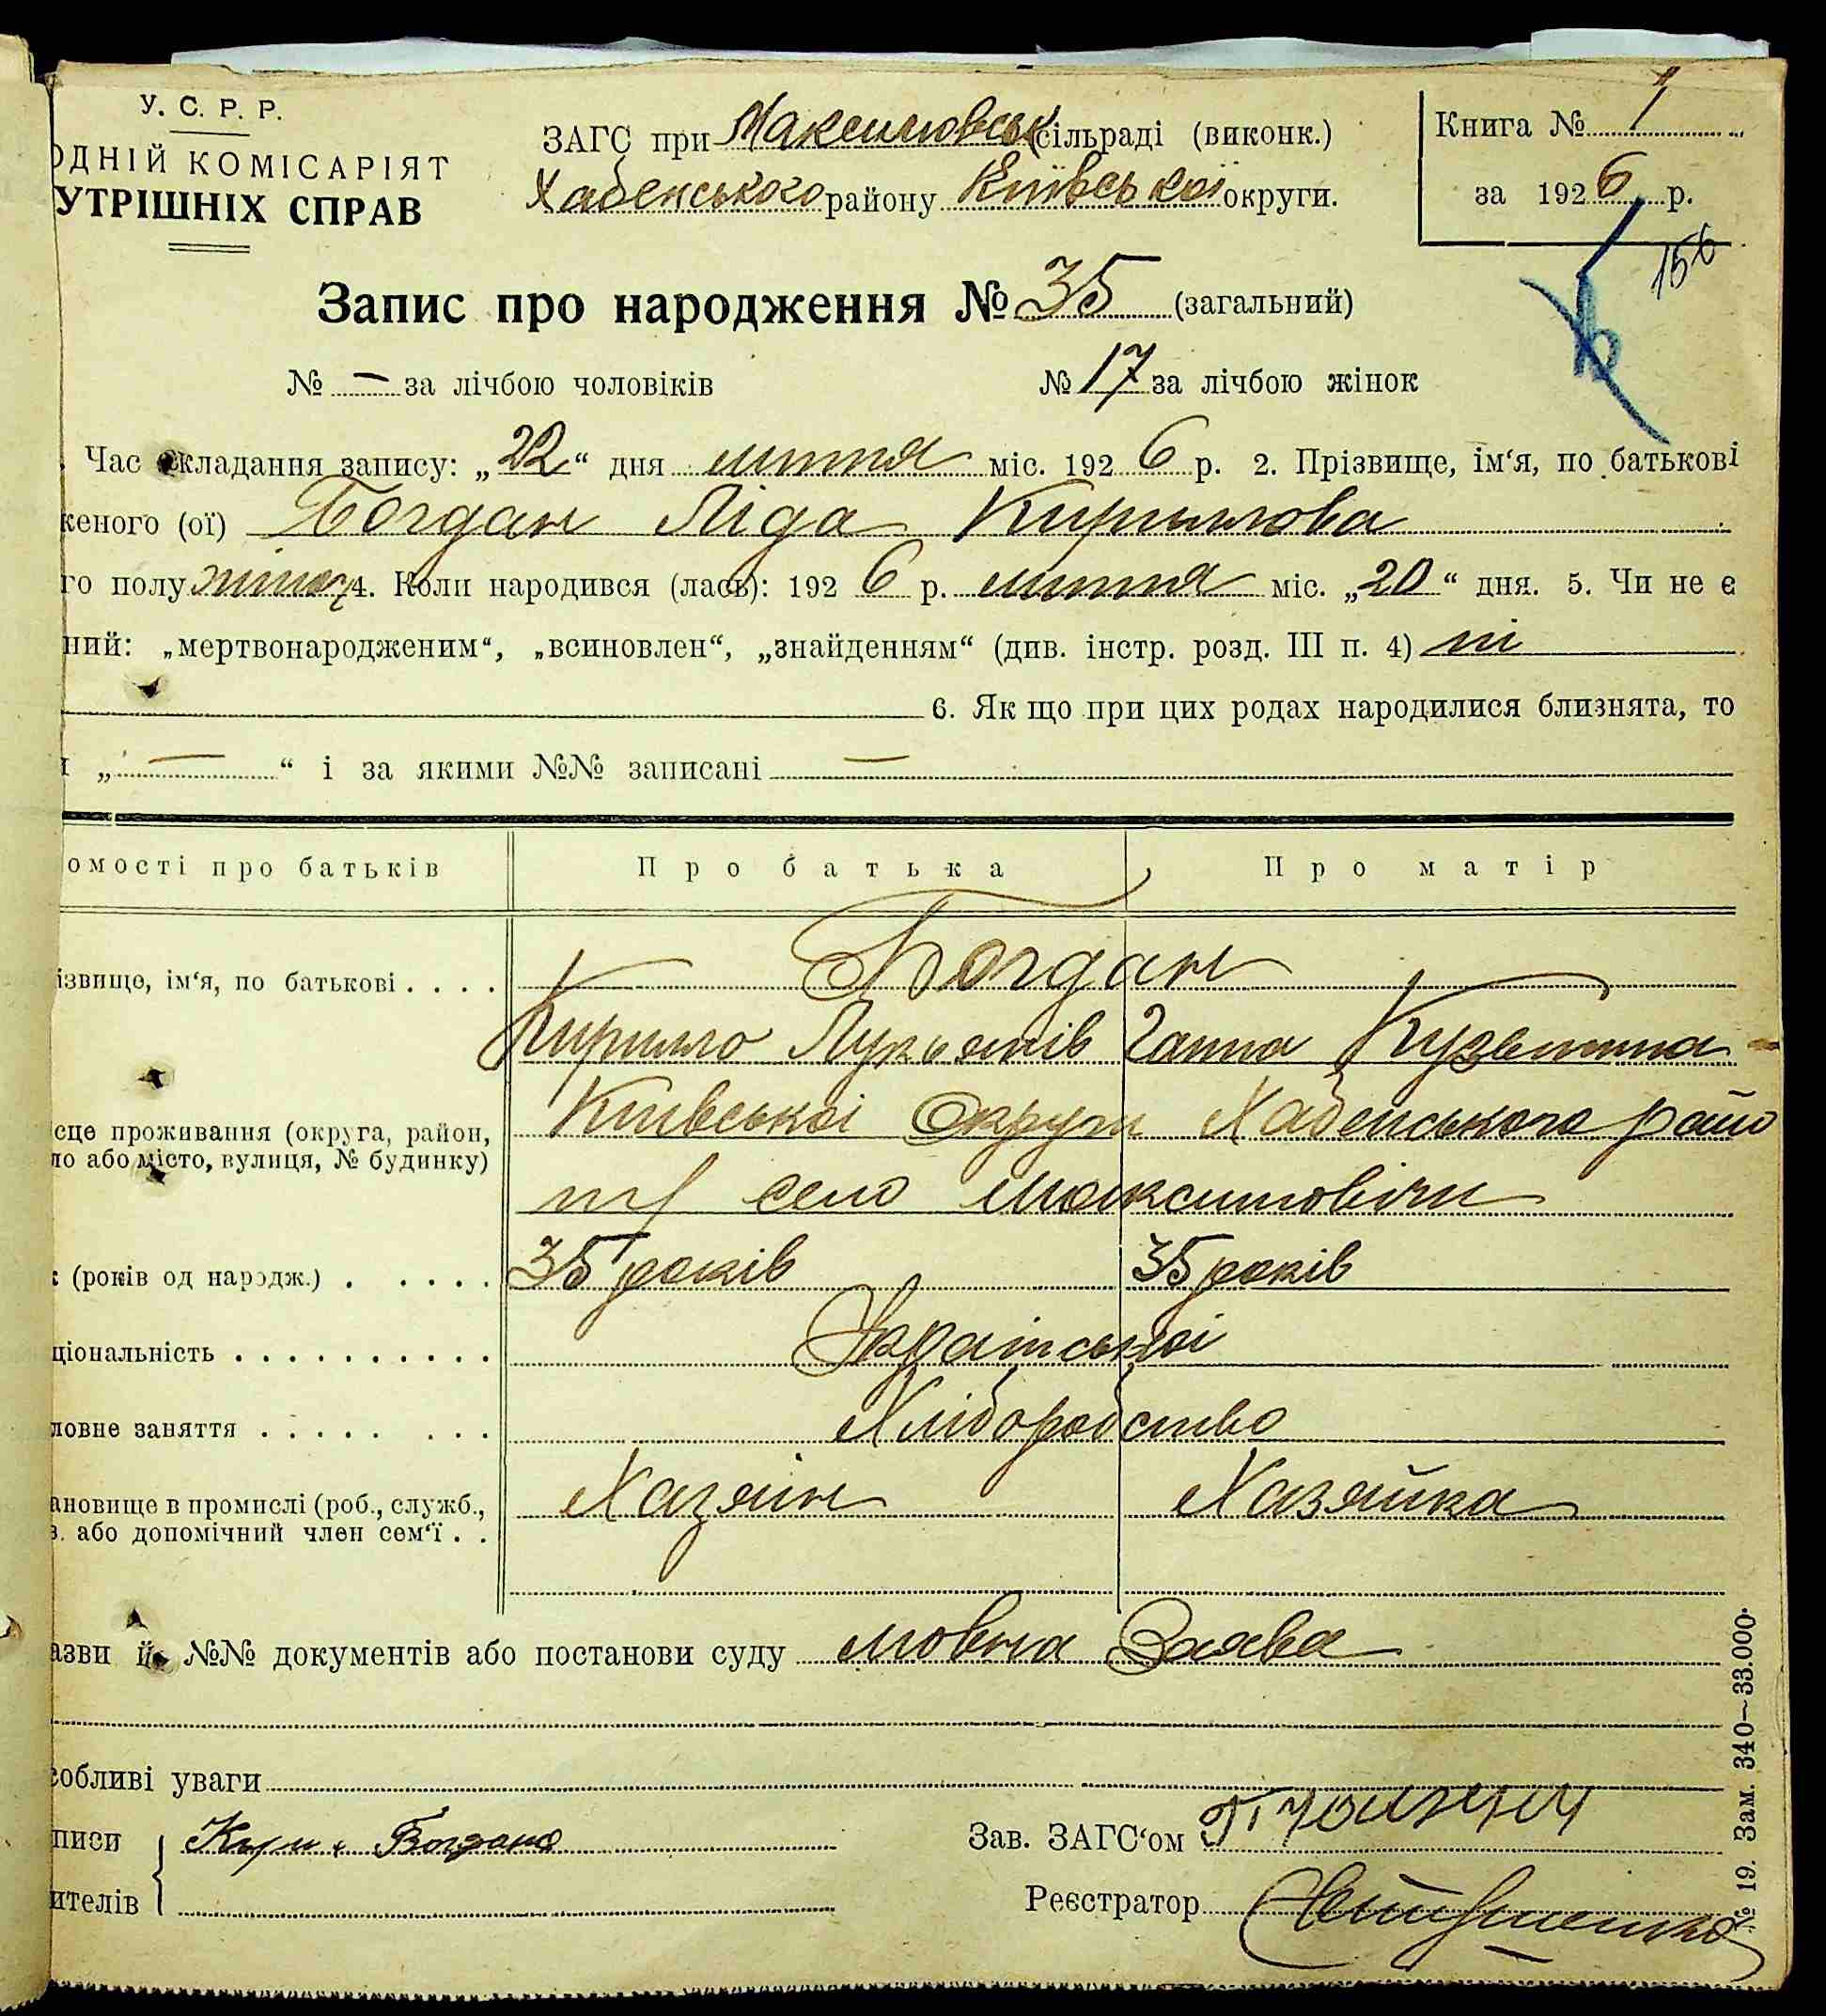 У. С. Р. Р.
ОДНІЙ КОМІСАРІЯТ
УТРІШНІХ СПРАВ
ЗАГС при Максимовськ сільраді (виконк.)
Хабенського району Київської округи.
Книга № 1
за 1926 р.
156
Запис про народження № 35 (загальний)
№ — за лічбою чоловіків № 17 за лічбою жінок
Час складання запису: „22“ дня липня міс. 1926 р. 2. Прізвище, ім‘я, по батькові
женого (ої) Богдан Ліда Кирилова
го полу жіноч 4. Коли народився (лась): 1926 р. липня міс. „20“ дня. 5. Чи не є
ний: „мертвонародженим“, „всиновлен“, „знайденням“ (див. інстр. розд. III п. 4) ні
6. Як що при цих родах народилися близнята, то
„—“ і за якими №№ записані —
омості про батьків Про батька Про матір
Богдан
ізвище, ім‘я, по батькові . . . .
Кирило Лукянів Ганна Кузьмина
Київської Округи Хабенського райо
сце проживання (округа, район,
ло або місто, вулиця, № будинку)
ну село Максимовичи
к (років од народж.) . . . . . 35 років 35 років
ціональність . . . . . . . . . . Української
ловне заняття . . . . . . . . Хліборобство
ановище в промислі (роб., служб., Хазяїн Хазяйка
з. або допомічний член сем‘ї . .
азви й №№ документів або постанови суду мовна Заява
обливі уваги
писи Кири Богдано
Зав. ЗАГС‘ом
ителів
Реєстратор
№ 19. Зам. 340—33.000.